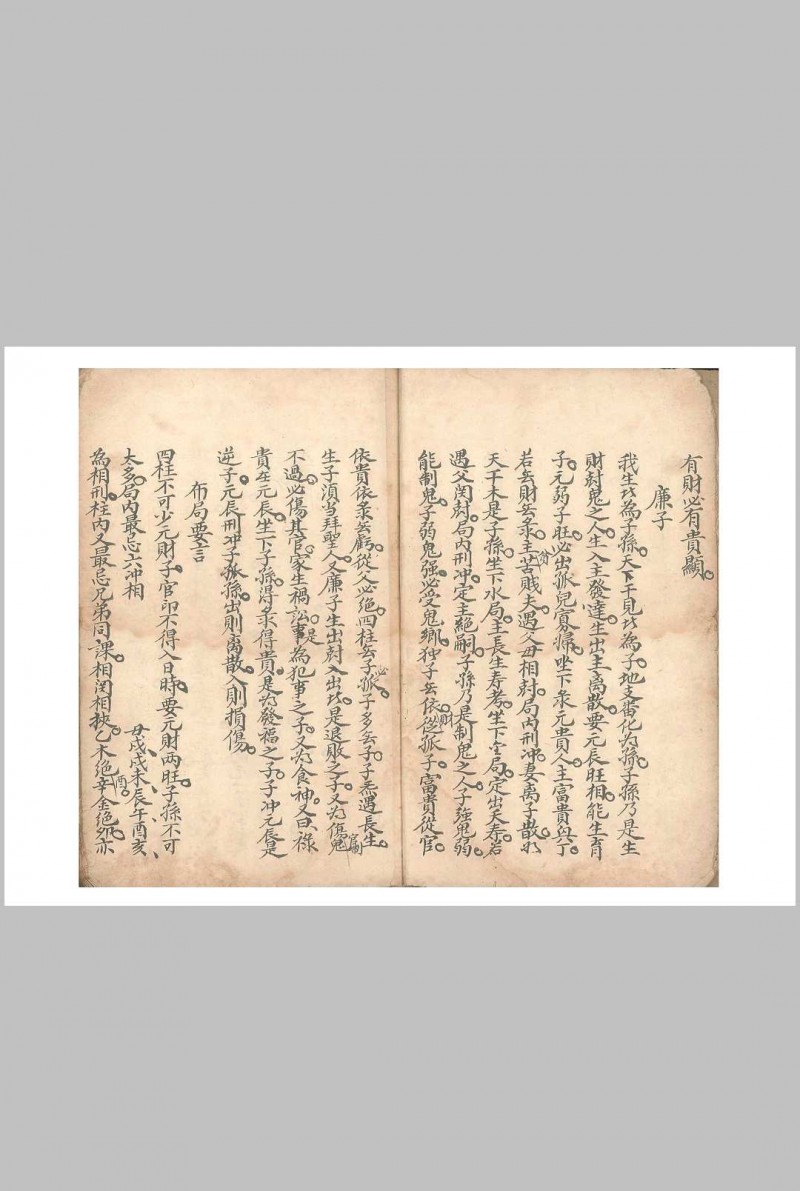 有財必有貴顯。
廉子
我生比為子孫。天下干見比為子。地支番化为孫。子孫乃是生
財剋鬼之人。生入主發達。生出主离散。要元長旺相。能生育
子。元弱子旺。必出孤兒寡婦。坐下彔元貴人。主富貴與丁。
若旡財旡彔。主苦賤夫。遇父毋相尅。局內刑冲。妻离子散。
天干木是子孫。坐下水局。主長生寿考。坐下金局。定出夭寿。若
遇父閃封。局内刑冲。定主絕嗣。子孫乃是制鬼之人。子強鬼弱。
能制鬼。子弱鬼强。必受鬼鄉。独子旡依從。孤子富貴從官。
依貴依彔旡虧。從父必絕。四柱旡子必孤。子多旡子。子炁遇長生。
生子湏当拜聖人。又廉子生出尅入出比。是退敗之子。又为傷鬼官
不過。必傷其官。家生禍訟事。是為犯事之子。又为食神。又曰禄
貴在元長。坐下子孫。得彔得貴。是为發福之子。子冲元長。是
逆子。元長刑冲子孤孫。出則离散。入則損傷。
布局要言
四柱不可少元財子官印不得入日時。要元財两旺。子孫不可
太多。局內最忌六冲相 丑戌戌未辰午酉亥
為相刑。柱内又最忌兄弟同課。相閃相挾。乙木絕酉。辛金絕卯。亦